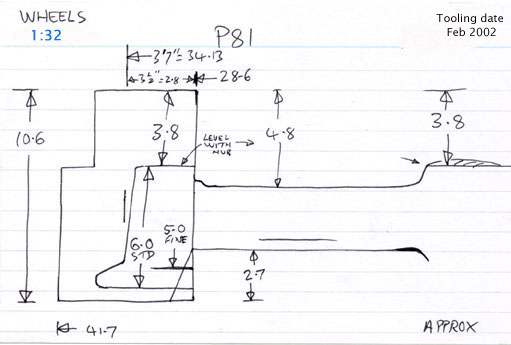 WHEELS
1:32
P81
Tooling date
Feb 2002
3'7"=34.13
3½"=2.8
28.6
10.6
3.8
LEVEL
WITH
HUB
4.8
3.8
6.0
STD
5.0
FINE
2.7
41.7
APPROX